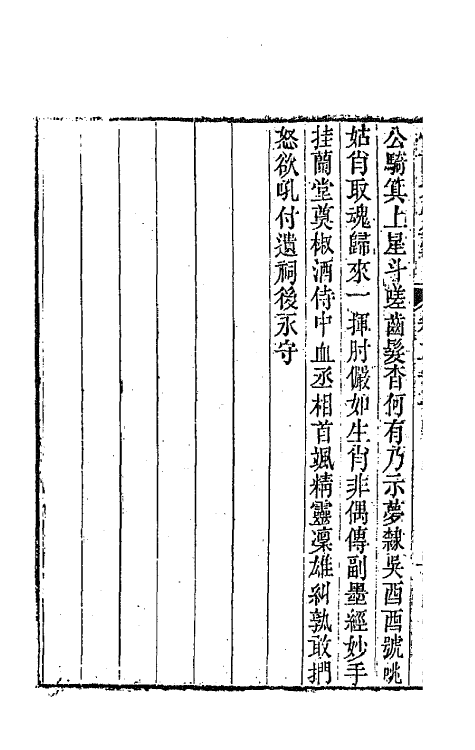 公騎箕上星斗嗟齒髮杳何有乃示夢隸吳酉酉號咷
姑肖取魂歸來一揮肘儼如生肖非偶傳副墨經妙手
挂蘭堂奠椒酒侍中血丞相首颯精靈凜雄糾孰敢捫
怒欲吼付遺祠後永守